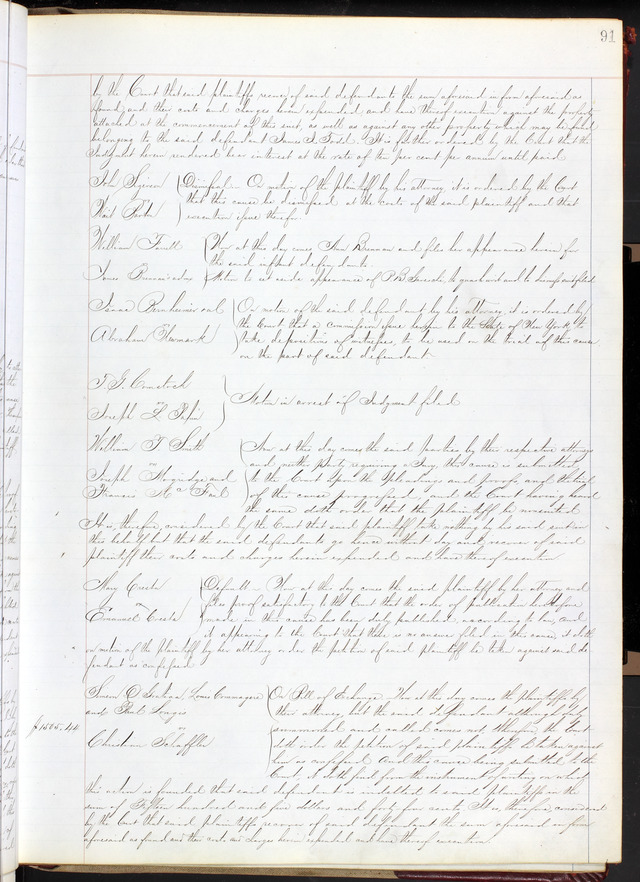 91
by the Court that said plaintiffs recover of said defendant the sum aforesaid in form aforesaid as
found, and their costs and charges herein expended, and have thereof execution against the property
attached at the commencement of this suit, as well as against any other property which may be found
belonging to the said defendant James J. It is further ordered by the Court that the
Judgment herein rendered bear interest at the rate of ten per cent per annum until paid
John
vs
Dismissed. On motion of the plaintiff by his attorney it is ordered by the Court
that this cause be dismissed at the costs of the said plaintiff and that
execution issue therefor
William
vs
James
Now at this day comes Ann and files her appearance herein for
the said infant defendants
Motion to set aside appearance of P.B. filed
Isaac Bernheimer et al
vs
Abraham Newmark
On motion of the said defendant by his attorney, it is ordered by
the Court that a commission issue herein to the State of New York to
take depositions of witnesses, to be used on the trial of this cause
on the part of said defendant
T. G. Comstock
vs
Joseph L. Papin
Motion in arrest of Judgment filed
William T. Smith
vs
Joseph and
Francis
Now at this day comes the said parties by their respective attorneys
and neither party requiring a Jury this cause is submitted
to the Court upon the pleadings and proofs and the trial
of the cause progressed, and the Court having heard
the same doth order that the plaintiff be nonsuited
It is, therefore, considered by the Court that said plaintiff take nothing by his said suit in
this behalf but that the said defendants go hence without day and recover of said
plaintiff their costs and charges herein expended and have thereof execution
Mary Creste
vs
Emanuel Creste
Default. Now at this day comes the said plaintiff by her attorney and
files proof satisfactory to the Court that the order of publication heretofore
made in this cause has been duly published according to law, and
it appearing to the Court that there is no answer filed in this cause it doth
on motion of the plaintiff by her attorney order the petition of said plaintiff to be taken against said de
fendant as confessed
Louis
and Paul
vs
Christian Schaffter
$1505.44
On Bill of Exchange. Now at this day comes the plaintiffs by
their attorney, but the said defendant although duly
summoned and called comes not, therefore the Court
doth order the petition of said plaintiffs to be taken against
him as confessed. And this cause being submitted to the
Court, it doth find from the instrument of writing on which
the action is founded that said defendant is indebted to said plaintiffs in the
sum of Fifteen hundred and five dollars and forty four cents. It is, therefore, considered
by the Court that said plaintiffs recover of said defendant the sum aforesaid in form
aforesaid as found and their costs and charges herein expended and have thereof execution.